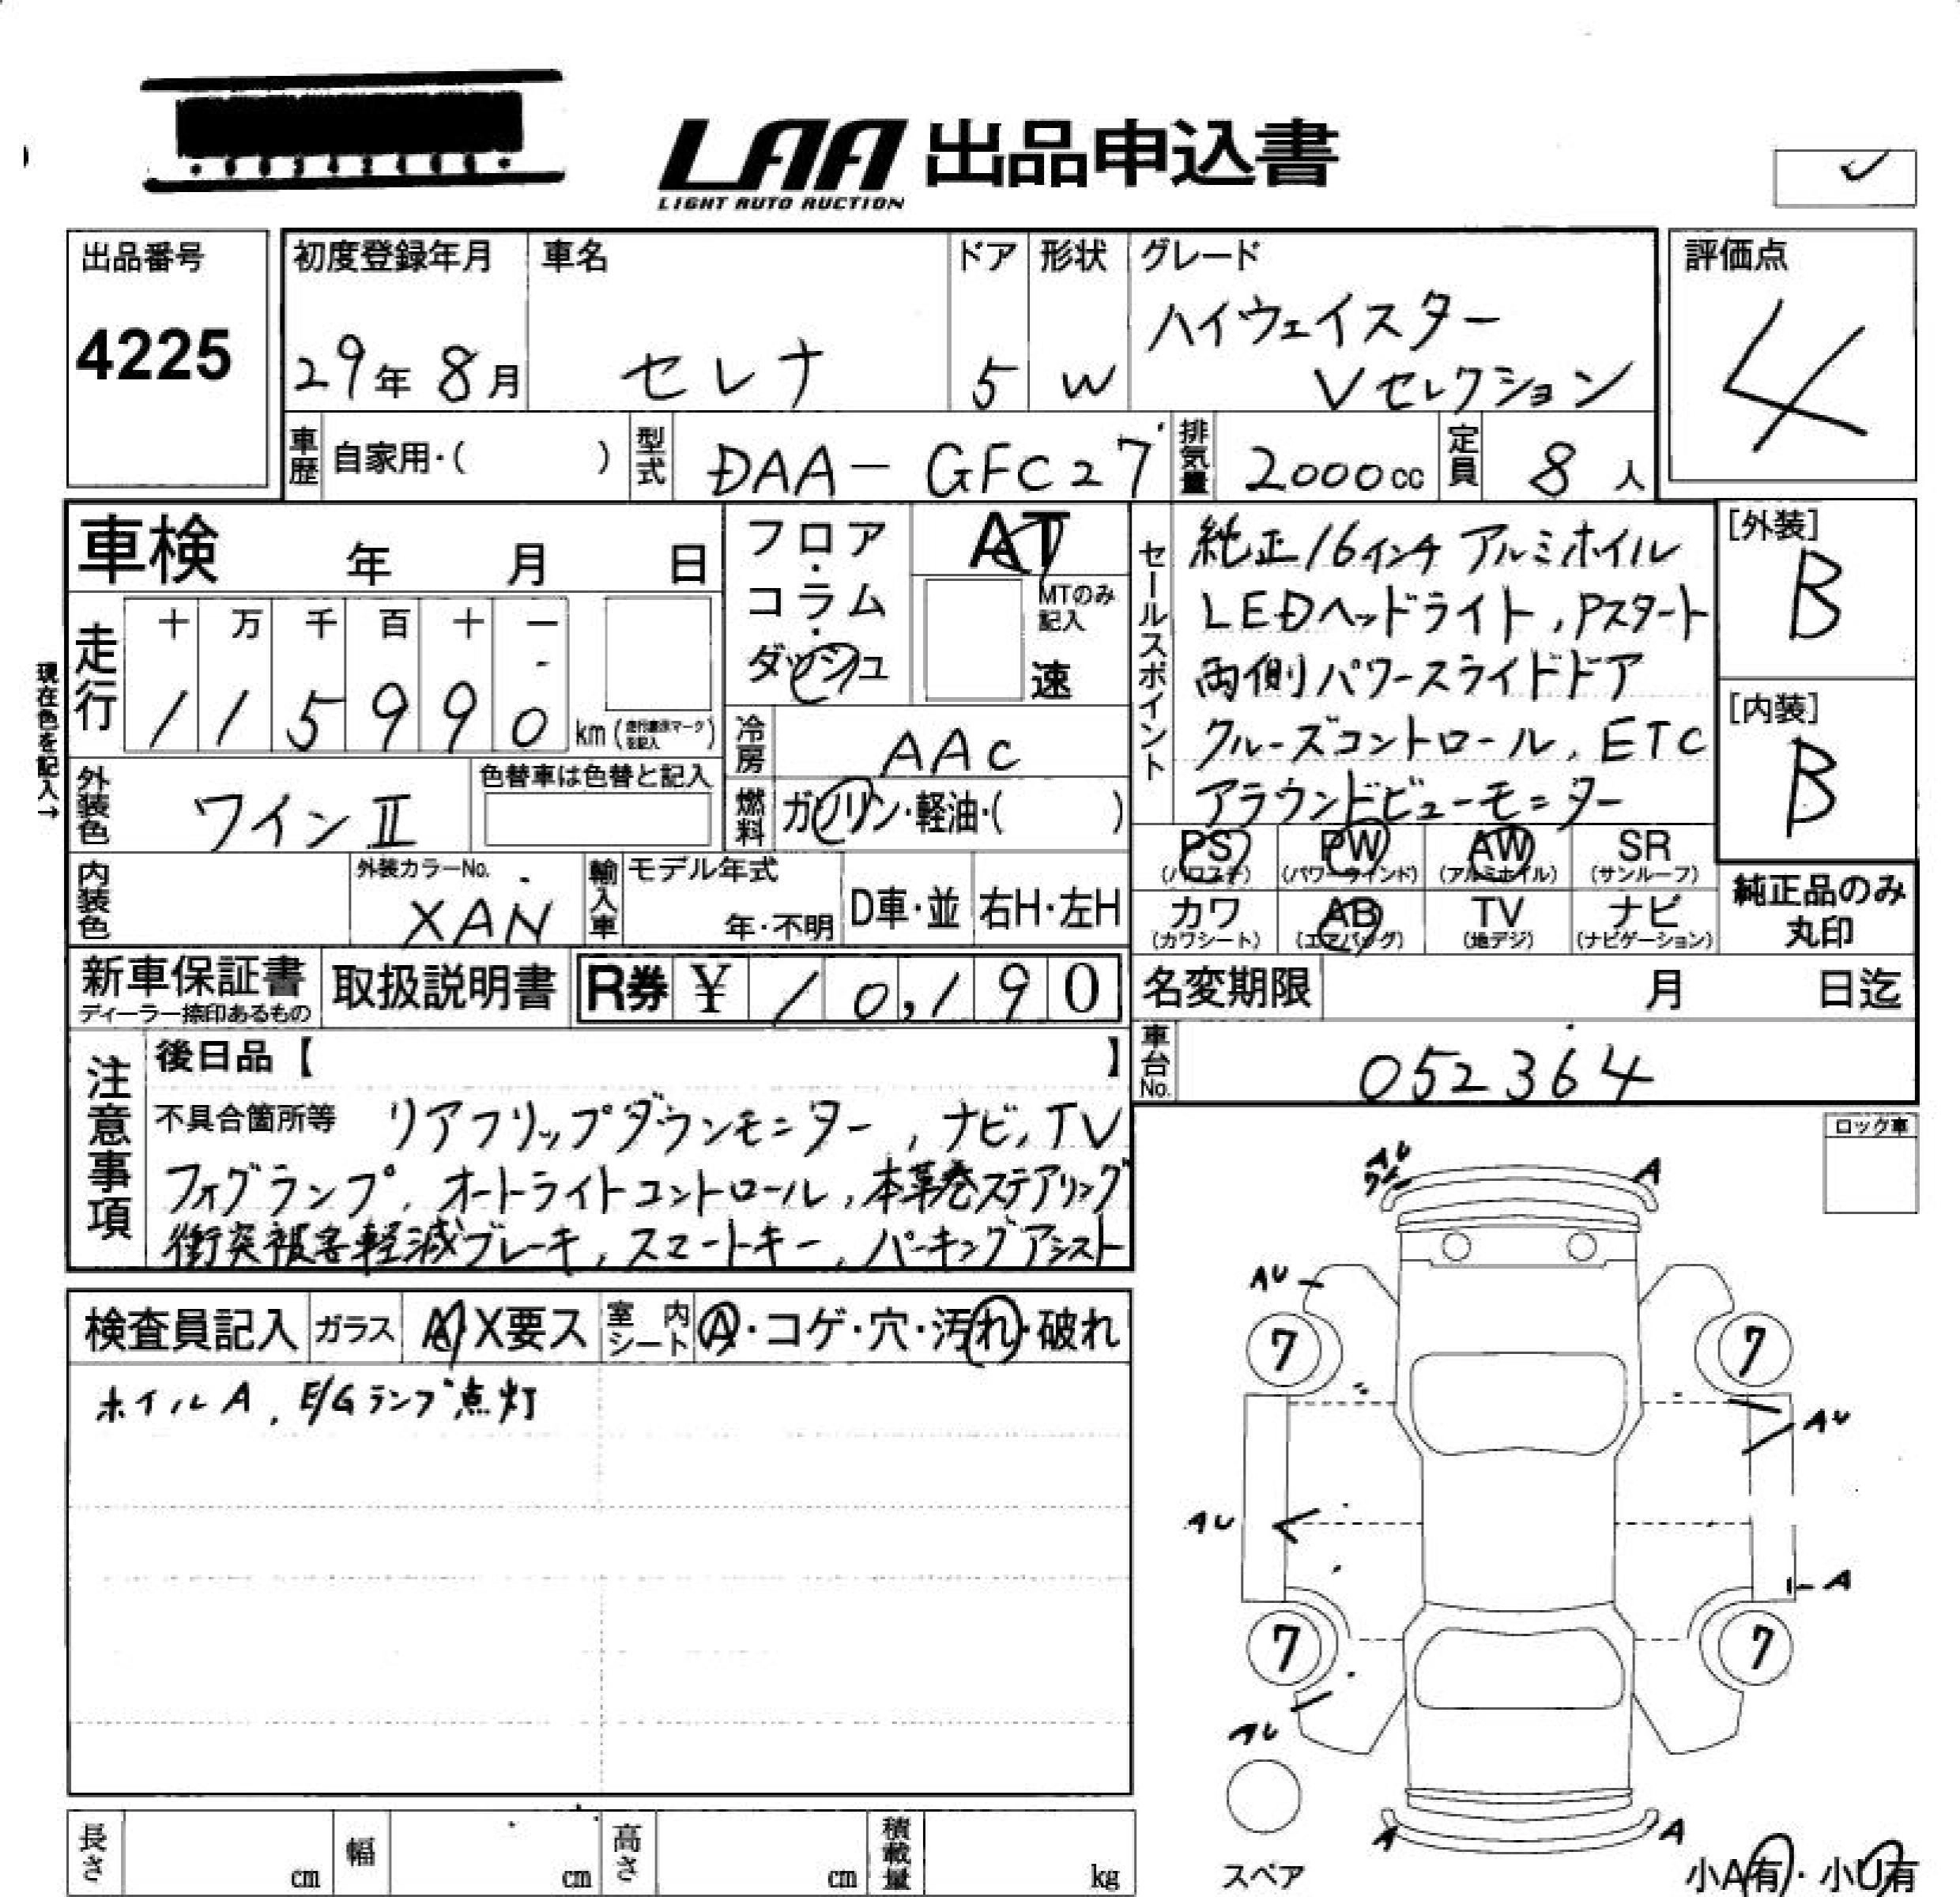 LAA 出品申込書
LIGHT AUTO AUCTION
出品番号
4225
初度登録年月
29年 8月
車名
セレナ
ドア
5
形状
W
グレード
ハイウェイスター
Vセレクション
評価点
4
車歴 自家用・( )
型式 DAA-GFC27
排気量 2000cc
定員 8人
車検 年 月 日
フロア・コラム・ダッシュ
AT
MTのみ記入
速
走行 十 万 千 百 十 一
1 1 5 9 9 0 km
現在色を記入→
冷房 AAC
燃料 ガソリン・軽油・( )
外装色 ワインⅡ
色替車は色替と記入
内装色
外装カラーNo.
XAN
輸入車
モデル年式
年・不明
D車・並
右H・左H
セールスポイント
純正16インチ アルミホイル
LEDヘッドライト,Pスタート
両側パワースライドドア
クルーズコントロール,ETC
アラウンドビューモニター
[外装]
B
[内装]
B
PS PW AW SR
(パワステ) (パワーウインド) (アルミホイル) (サンルーフ)
カワ AB TV ナビ
(カワシート) (エアバッグ) (地デジ) (ナビゲーション)
純正品のみ
丸印
新車保証書
ディーラー捺印あるもの
取扱説明書
R券 ¥10,190
名変期限 月 日迄
車台No. 052364
注意事項
後日品【 】
不具合箇所等 リアフリップダウンモニター,ナビ,TV
フォグランプ,オートライトコントロール,本革巻ステアリング
衝突被害軽減ブレーキ,スマートキー,パーキングアシスト
検査員記入 ガラス A・X要ス 室内シート A・コゲ・穴・汚れ・破れ
ホイルA,E/Gランプ点灯
ロック車
AU
A
AU
7 7
AU
AU
A
7 7
AU
A A
スペア
小A有・小U有
長さ cm 幅 cm 高さ cm 積載量 kg